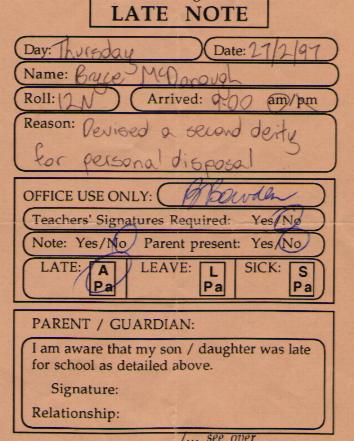 LATE NOTE
Day: Thursday Date: 27/2/97
Name: Bryce McDonough
Roll: 12N Arrived: 9:00 am/pm
Reason: Devised a second deity
for personal disposal
OFFICE USE ONLY: B Bowden
Teachers' Signatures Required: Yes/No
Note: Yes/No Parent present: Yes/No
LATE: A Pa LEAVE: L Pa SICK: S Pa
PARENT / GUARDIAN:
I am aware that my son / daughter was late
for school as detailed above.
Signature:
Relationship:
/... see over